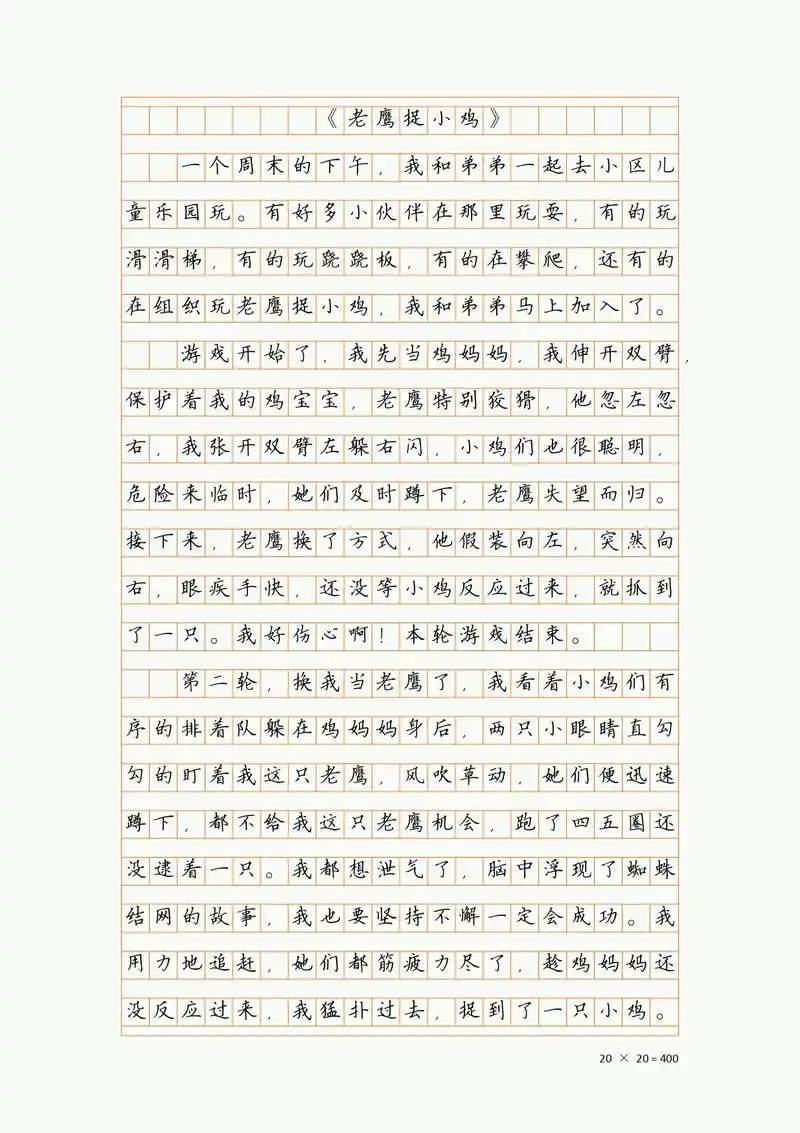 《老鹰捉小鸡》
一个周末的下午，我和弟弟一起去小区儿
童乐园玩。有好多小伙伴在那里玩耍，有的玩
滑滑梯，有的玩跷跷板，有的在攀爬，还有的
在组织玩老鹰捉小鸡，我和弟弟马上加入了。
游戏开始了，我先当鸡妈妈，我伸开双臂，
保护着我的鸡宝宝，老鹰特别狡猾，他忽左忽
右，我张开双臂左躲右闪，小鸡们也很聪明，
危险来临时，她们及时蹲下，老鹰失望而归。
接下来，老鹰换了方式，他假装向左，突然向
右，眼疾手快，还没等小鸡反应过来，就抓到
了一只。我好伤心啊！本轮游戏结束。
第二轮，换我当老鹰了，我看着小鸡们有
序的排着队躲在鸡妈妈身后，两只小眼睛直勾
勾的盯着我这只老鹰，风吹草动，她们便迅速
蹲下，都不给我这只老鹰机会，跑了四五圈还
没逮着一只。我都想泄气了，脑中浮现了蜘蛛
结网的故事，我也要坚持不懈一定会成功。我
用力地追赶，她们都筋疲力尽了，趁鸡妈妈还
没反应过来，我猛扑过去，捉到了一只小鸡。
20 × 20=400